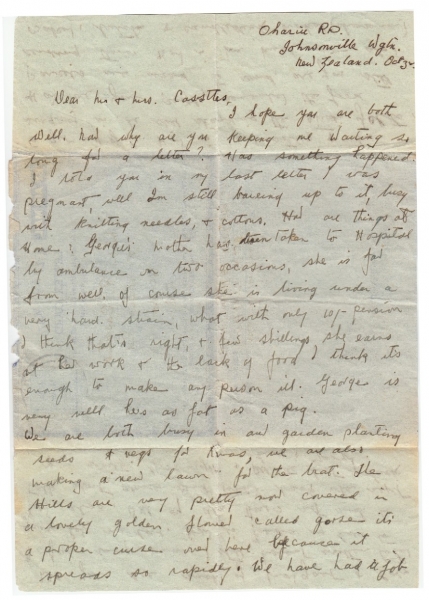 Ohariu Rd.
Johnsonville Wgtn.
New Zealand. Oct 3
Dear Mr & Mrs. Cassttes,
I hope you are both
well. now why are you keeping me waiting so
long for a letter? Has something happened.
I told you in my last letter I was
pregnant, well I'm still bearing up to it, busy
with knitting needles, & cottons. How are things at
Home; George's mother has taken to Hospital
by ambulance on two occasions, she is far
from well. of course she is living under a
very hard strain, what with only 10/- pension
I think that's right, & few shillings she earns
at her work & the lack of food I think its
enough to make any person ill. George is
very well hes as fat as a pig.
We are both busy in our garden planting
seeds & vegs for Xmas, we are also
making a new lawn for the brat. The
Hills are very pretty now covered in
a lovely golden flower called gorse its
a proper curse over here because it
spreads so rapidly. We have had a job